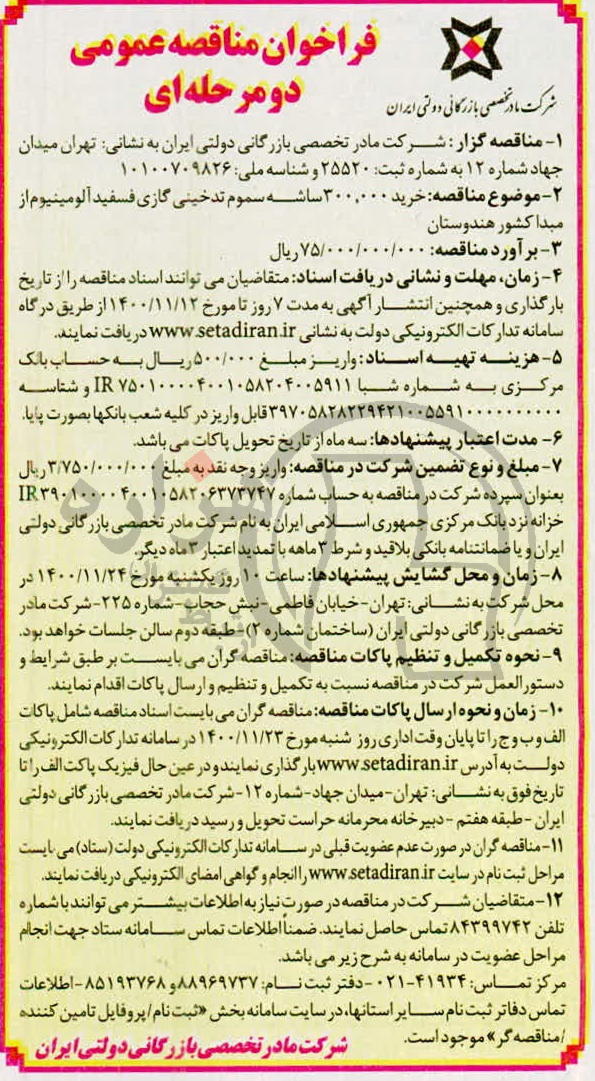 فراخوان مناقصه عمومی
دو مرحله‌ای
شرکت مادر تخصصی بازرگانی دولتی ایران
۱- مناقصه گزار: شرکت مادر تخصصی بازرگانی دولتی ایران به نشانی: تهران میدان
جهاد شماره ۱۲ به شماره ثبت: ۲۵۵۲۰ و شناسه ملی: ۱۰۱۰۰۷۰۹۸۲۶
۲- موضوع مناقصه: خرید ۳۰۰,۰۰۰ ساشه سموم تدخینی گازی فسفید آلومینیوم از
مبدا کشور هندوستان
۳- برآورد مناقصه: ۷۵/۰۰۰/۰۰۰/۰۰۰ ریال
۴- زمان، مهلت و نشانی دریافت اسناد: متقاضیان می توانند اسناد مناقصه را از تاریخ
بارگذاری و همچنین انتشار آگهی به مدت ۷ روز تا مورخ ۱۴۰۰/۱۱/۱۲ از طریق درگاه
سامانه تدارکات الکترونیکی دولت به نشانی www.setadiran.ir دریافت نمایند.
۵- هزینه تهیه اسناد: واریز مبلغ ۵۰۰/۰۰۰ ریال به حساب بانک
مرکزی به شماره شبا IR ۷۵۰۱۰۰۰۰۴۰۰۱۰۵۸۲۰۴۰۰۵۹۱۱ و شناسه
۳۹۷۰۵۸۲۸۲۲۹۴۲۱۰۰۵۵۹۱۰۰۰۰۰۰۰۰۰۰ قابل واریز در کلیه شعب بانکها بصورت پایا.
۶- مدت اعتبار پیشنهادها: سه ماه از تاریخ تحویل پاکات می باشد.
۷- مبلغ و نوع تضمین شرکت در مناقصه: واریز وجه نقد به مبلغ ۳/۷۵۰/۰۰۰/۰۰۰ ریال
بعنوان سپرده شرکت در مناقصه به حساب شماره IR ۳۹۰۱۰۰۰۰۴۰۰۱۰۵۸۲۰۶۳۷۳۷۴۷
خزانه نزد بانک مرکزی جمهوری اسلامی ایران به نام شرکت مادر تخصصی بازرگانی دولتی
ایران و یا ضمانتنامه بانکی بلاقید و شرط ۳ ماهه با تمدید اعتبار ۳ ماه دیگر.
۸- زمان و محل گشایش پیشنهادها: ساعت ۱۰ روز یکشنبه مورخ ۱۴۰۰/۱۱/۲۴ در
محل شرکت به نشانی: تهران- خیابان فاطمی- نبش حجاب- شماره ۲۲۵- شرکت مادر
تخصصی بازرگانی دولتی ایران (ساختمان شماره ۲)- طبقه دوم سالن جلسات خواهد بود.
۹- نحوه تکمیل و تنظیم پاکات مناقصه: مناقصه گران می بایست بر طبق شرایط و
دستورالعمل شرکت در مناقصه نسبت به تکمیل و تنظیم و ارسال پاکات اقدام نمایند.
۱۰- زمان و نحوه ارسال پاکات مناقصه: مناقصه گران می بایست اسناد مناقصه شامل پاکات
الف و ب و ج را تا پایان وقت اداری روز شنبه مورخ ۱۴۰۰/۱۱/۲۳ در سامانه تدارکات الکترونیکی
دولت به آدرس www.setadiran.ir بارگذاری نمایند و در عین حال فیزیک پاکت الف را تا
تاریخ فوق به نشانی: تهران- میدان جهاد- شماره ۱۲- شرکت مادر تخصصی بازرگانی دولتی
ایران - طبقه هفتم - دبیرخانه محرمانه حراست تحویل و رسید دریافت نمایند.
۱۱- مناقصه گران در صورت عدم عضویت قبلی در سامانه تدارکات الکترونیکی دولت (ستاد) می بایست
مراحل ثبت نام در سایت www.setadiran.ir را انجام و گواهی امضای الکترونیکی دریافت نمایند.
۱۲- متقاضیان شرکت در مناقصه در صورت نیاز به اطلاعات بیشتر می توانند با شماره
تلفن ۸۴۳۹۹۷۴۲ تماس حاصل نمایند. ضمناً اطلاعات تماس سامانه ستاد جهت انجام
مراحل عضویت در سامانه به شرح زیر می باشد.
مرکز تماس: ۴۱۹۳۴-۰۲۱- دفتر ثبت نام: ۸۸۹۶۹۷۳۷ و ۸۵۱۹۳۷۶۸- اطلاعات
تماس دفاتر ثبت نام سایر استانها، در سایت سامانه بخش «ثبت نام/پروفایل تامین کننده
/مناقصه گر» موجود است.
شرکت مادر تخصصی بازرگانی دولتی ایران